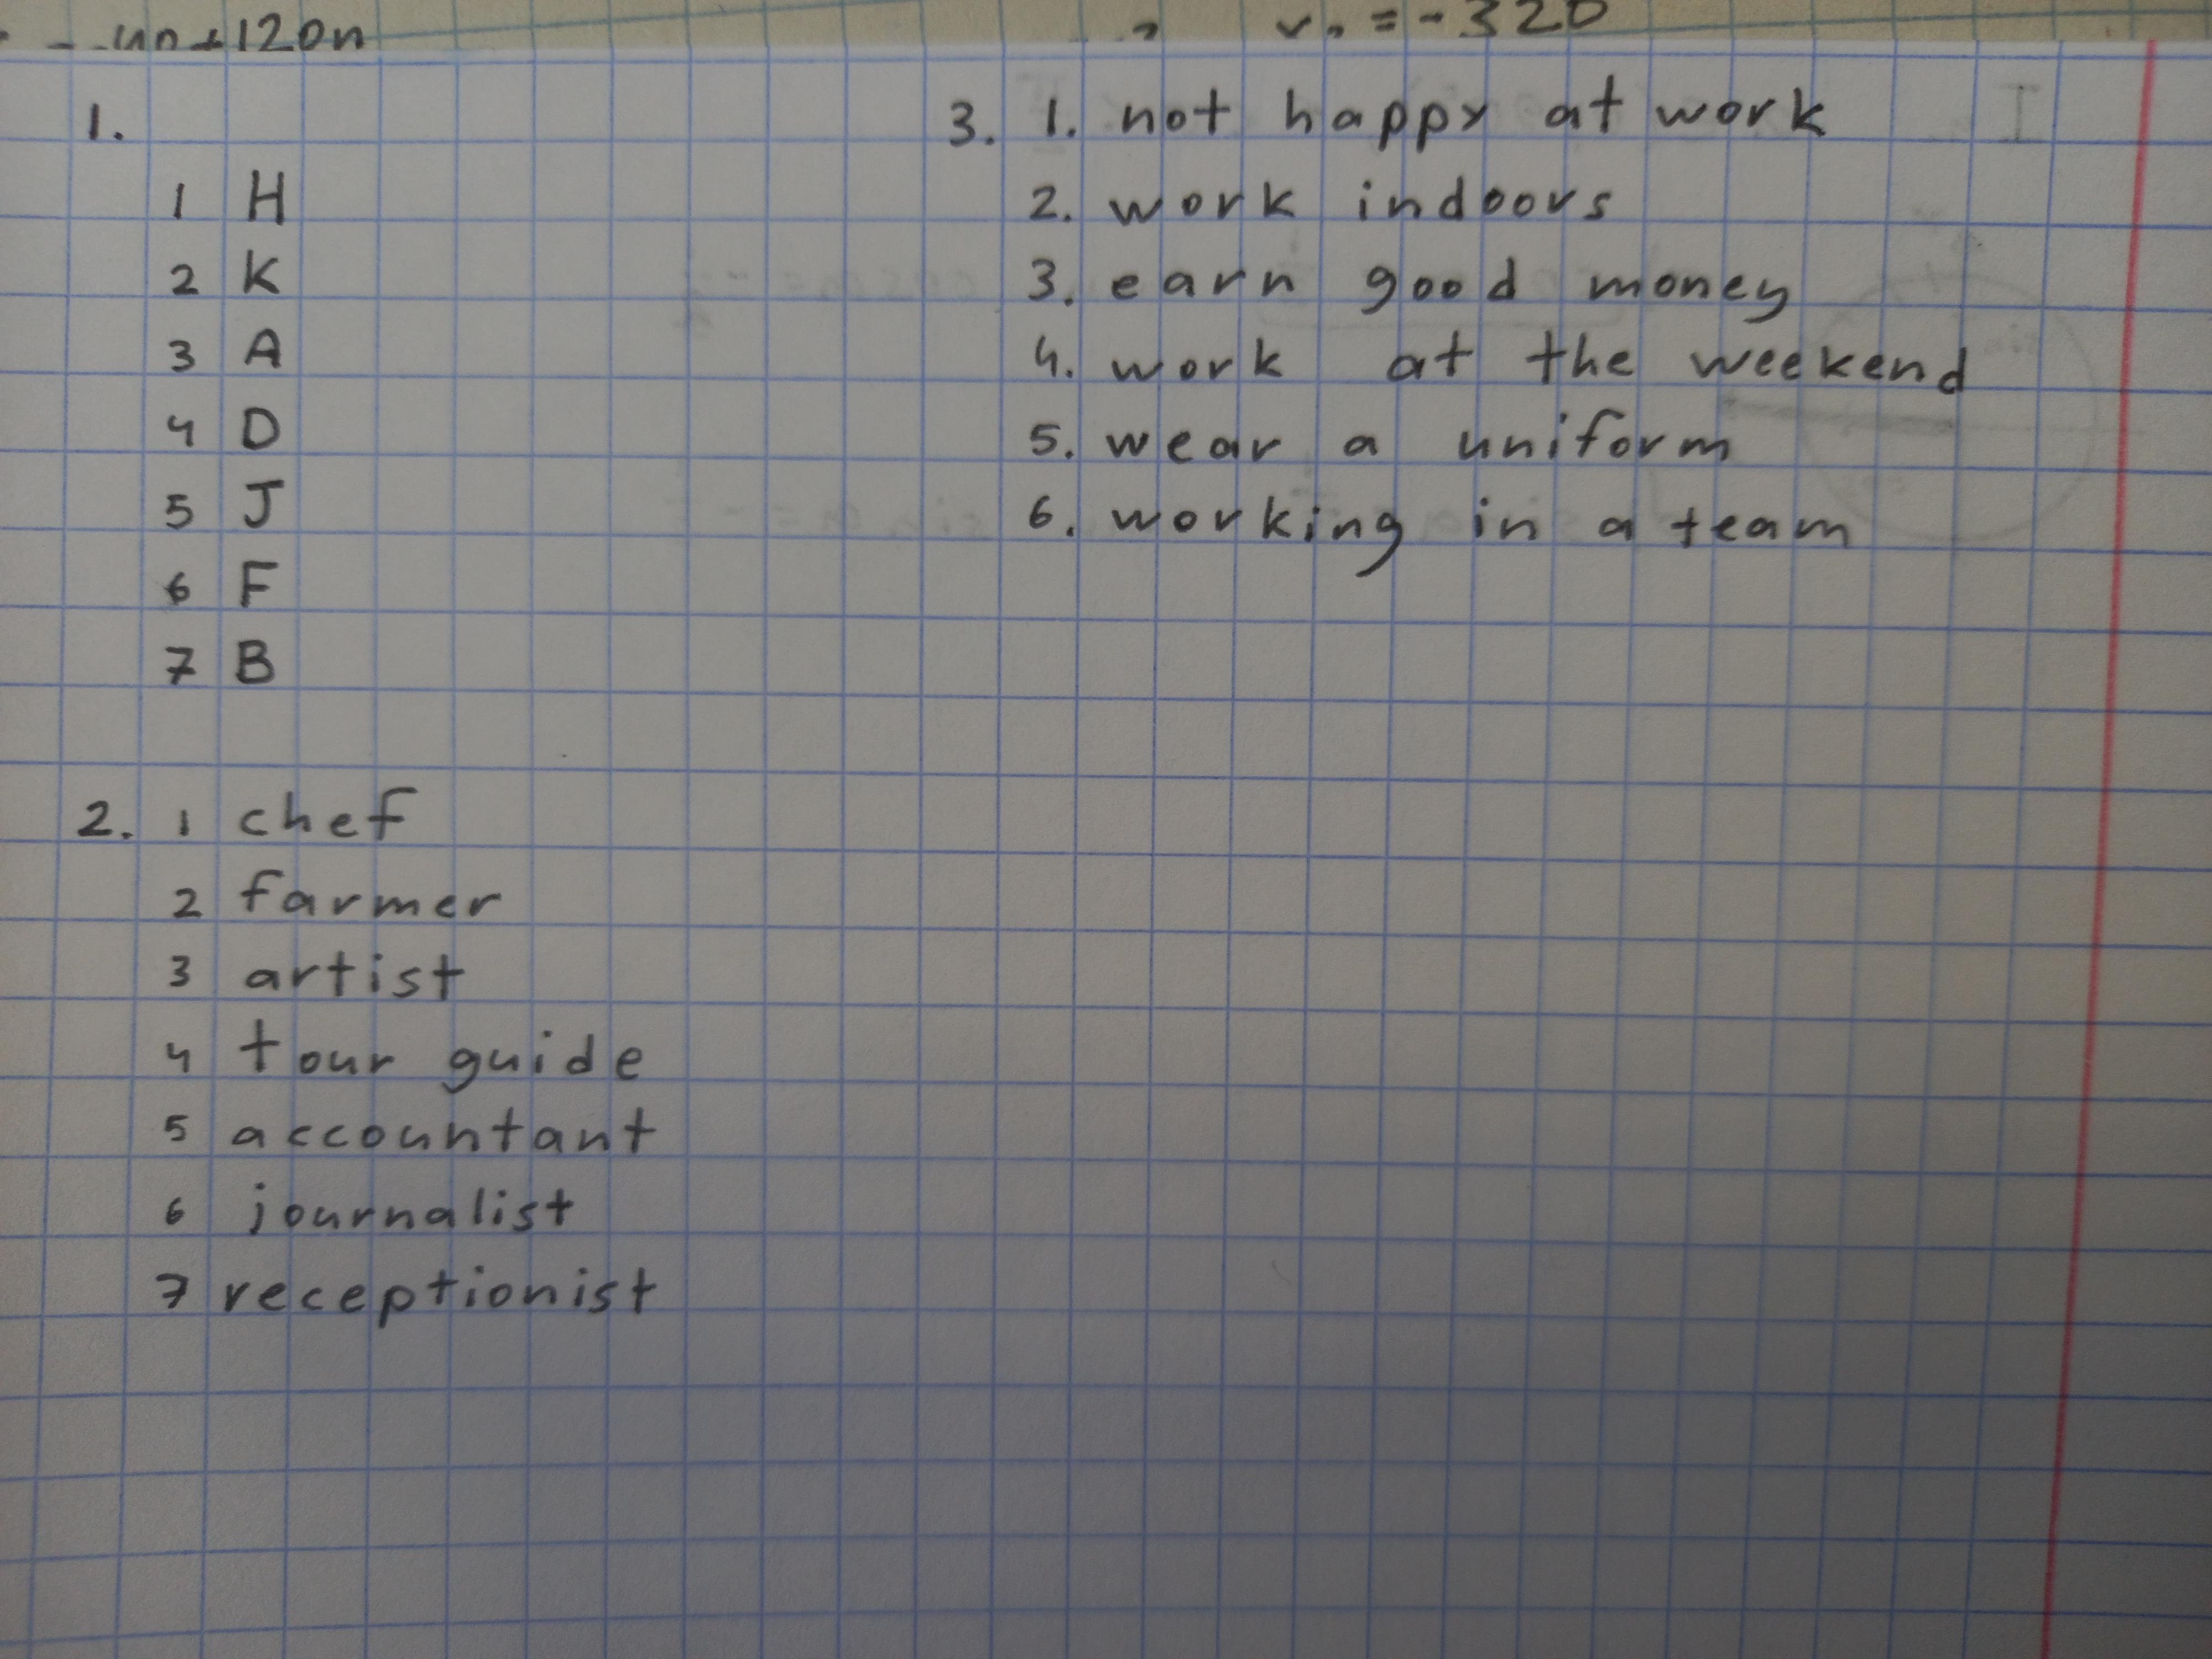 +120n
= - 320
1.
1 H
2 K
3 A
4 D
5 J
6 F
7 B
2. 1 chef
2 farmer
3 artist
4 tour guide
5 accountant
6 journalist
7 receptionist
3. 1. not happy at work
2. work indoors
3. earn good money
4. work at the weekend
5. wear a uniform
6. working in a team